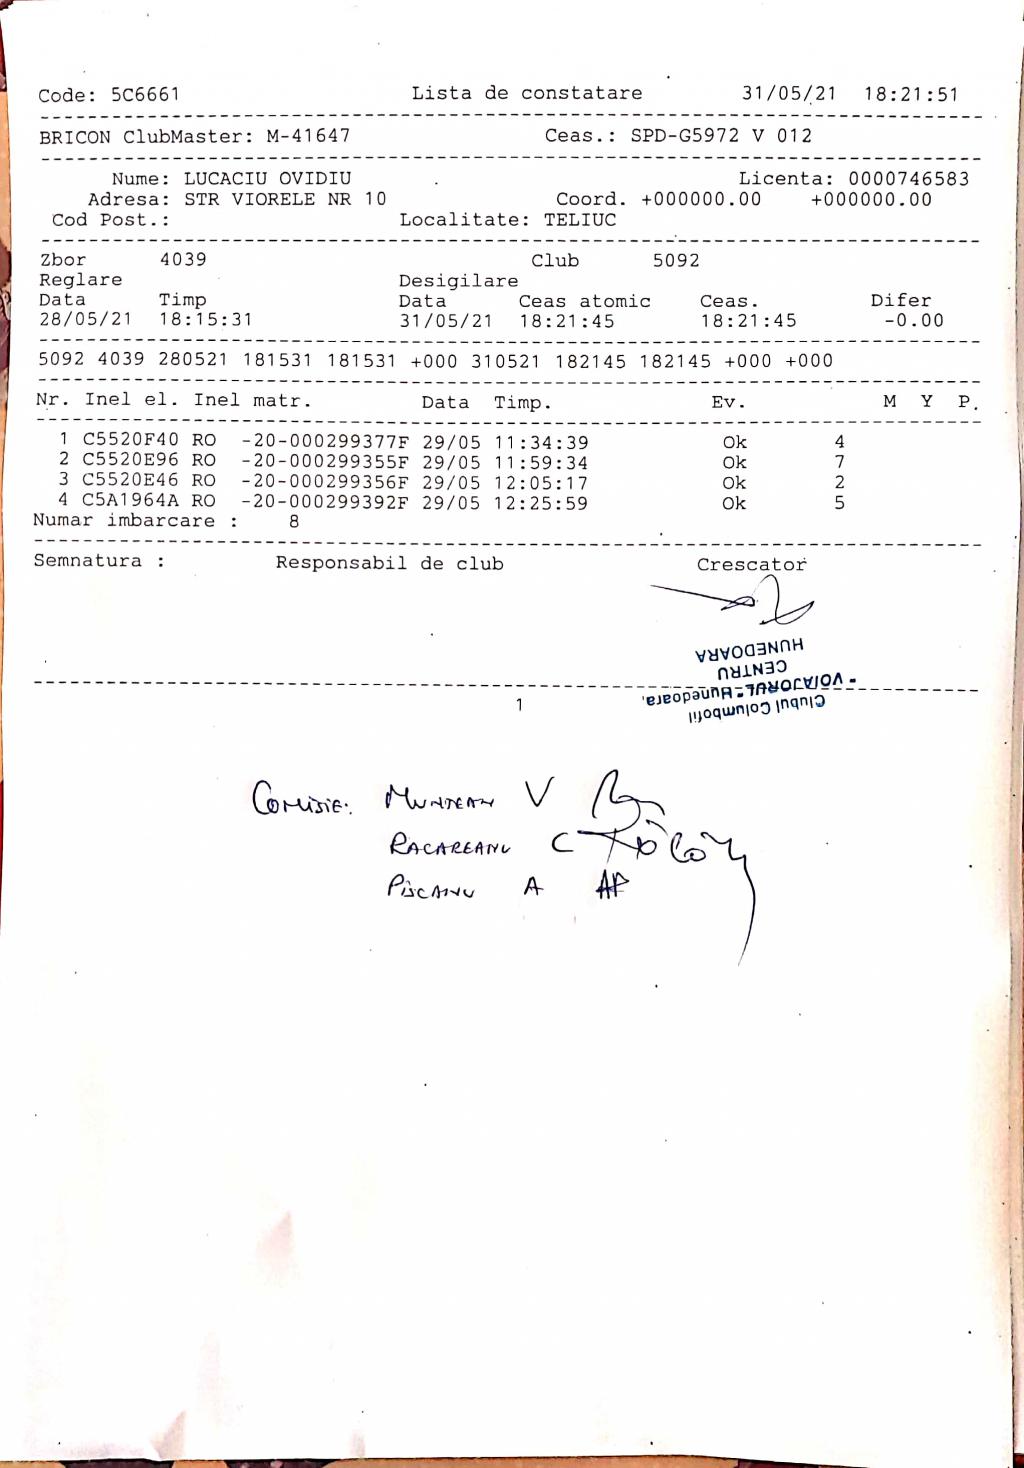 Code: 5C6661 Lista de constatare 31/05/21 18:21:51
BRICON ClubMaster: M-41647 Ceas.: SPD-G5972 V 012
Nume: LUCACIU OVIDIU Licenta: 0000746583
Adresa: STR VIORELE NR 10 Coord. +000000.00 +000000.00
Cod Post.: Localitate: TELIUC
Zbor 4039 Club 5092
Reglare Desigilare
Data Timp Data Ceas atomic Ceas. Difer
28/05/21 18:15:31 31/05/21 18:21:45 18:21:45 -0.00
5092 4039 280521 181531 181531 +000 310521 182145 182145 +000 +000
Nr. Inel el. Inel matr. Data Timp. Ev. M Y P.
1 C5520F40 RO -20-000299377F 29/05 11:34:39 Ok 4
2 C5520E96 RO -20-000299355F 29/05 11:59:34 Ok 7
3 C5520E46 RO -20-000299356F 29/05 12:05:17 Ok 2
4 C5A1964A RO -20-000299392F 29/05 12:25:59 Ok 5
Numar imbarcare : 8
Semnatura : Responsabil de club Crescator
Clubul Columbofil
"VOIAJORUL" Hunedoara.
CENTRU
HUNEDOARA
1
Comisie: MUNTEAN V
RACAREANU C
PISCANU A AP